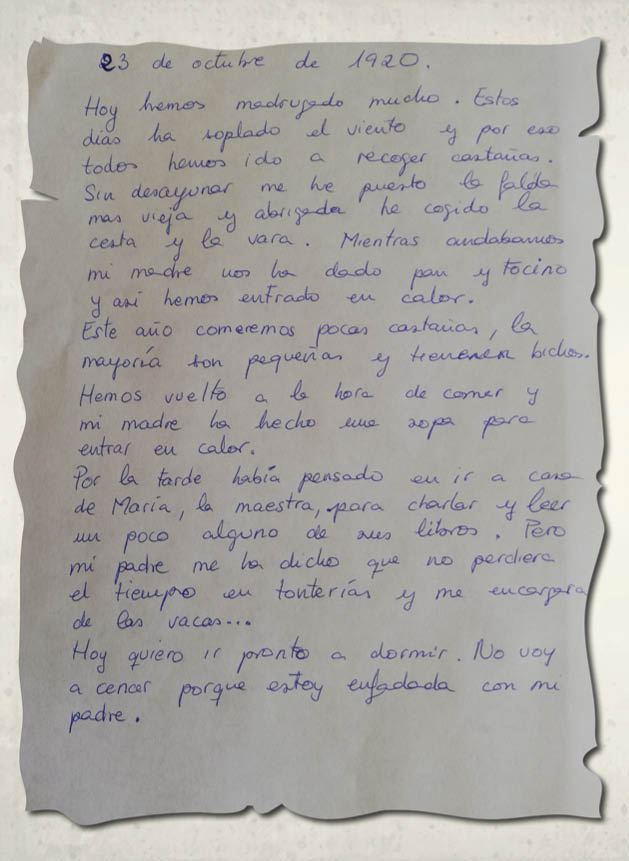 23 de octubre de 1920.
Hoy hemos madrugado mucho. Estos
días ha soplado el viento y por eso
todos hemos ido a recoger castañas.
Sin desayunar me he puesto la falda
mas vieja y abrigada he cogido la
cesta y la vara. Mientras andabamos
mi madre nos ha dado pan y tocino
y así hemos entrado en calor.
Este año comeremos pocas castañas, la
mayoría son pequeñas y tienen bichos.
Hemos vuelto a la hora de comer y
mi madre ha hecho una sopa para
entrar en calor.
Por la tarde había pensado en ir a casa
de María, la maestra, para charlar y leer
un poco alguno de sus libros. Pero
mi padre me ha dicho que no perdiera
el tiempo en tonterías y me encargara
de las vacas...
Hoy quiero ir pronto a dormir. No voy
a cenar porque estoy enfadada con mi
padre.